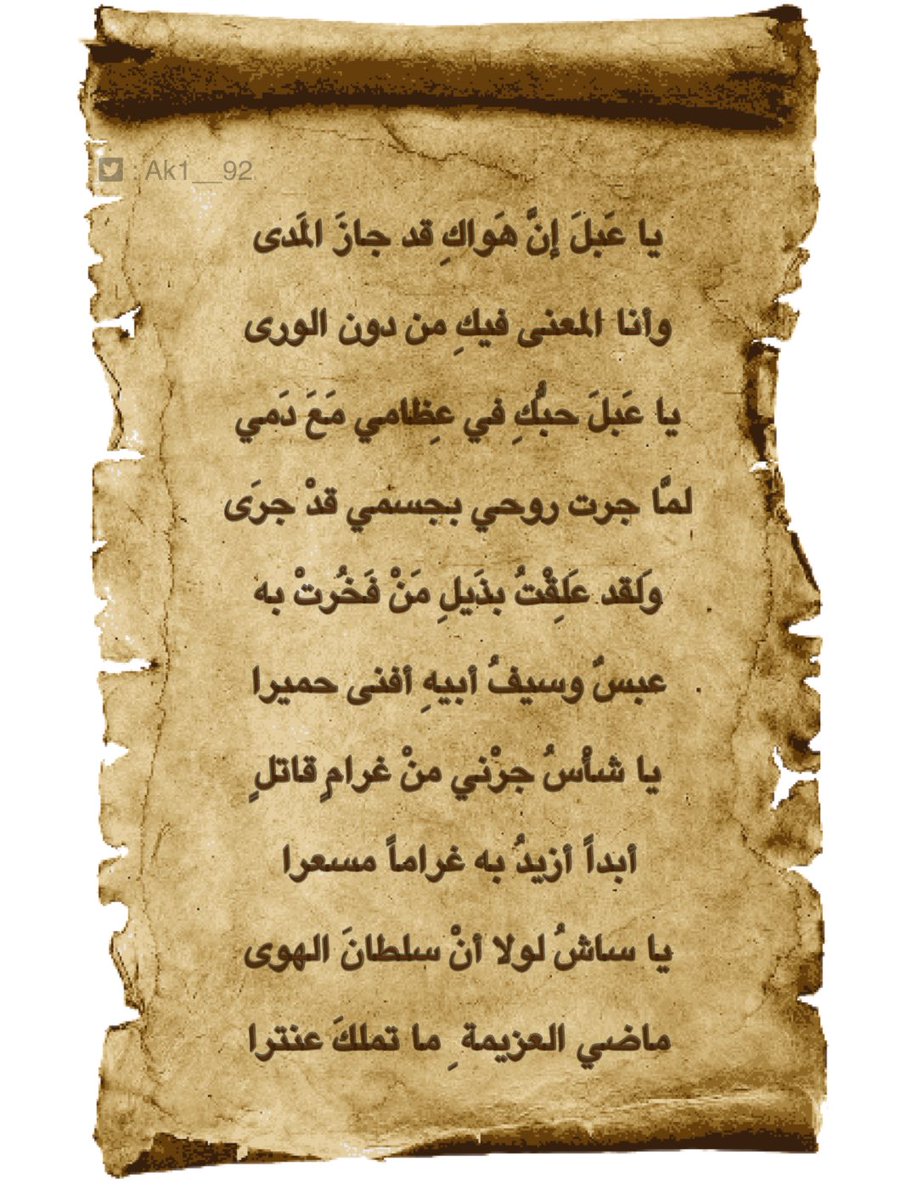 : Ak1__92
يا عَبلَ إنَّ هَواكِ قد جازَ المَدى
وأنا المعنى فيكِ من دون الورى
يا عَبلَ حبُّكِ في عِظامي مَعَ دَمي
لمَّا جرت روحي بجسمي قدْ جرَى
ولَقد عَلِقْتُ بذَيلِ مَنْ فَخُرتْ به
عبسٌ وسيفُ أبيهِ أفنى حميرا
يا شأْسُ جرْني منْ غرامٍ قاتلٍ
أبداً أزيدُ به غراماً مسعرا
يا ساشُ لولا أنْ سلطانَ الهوى
ماضي العزيمة ِ ما تملكَ عنترا